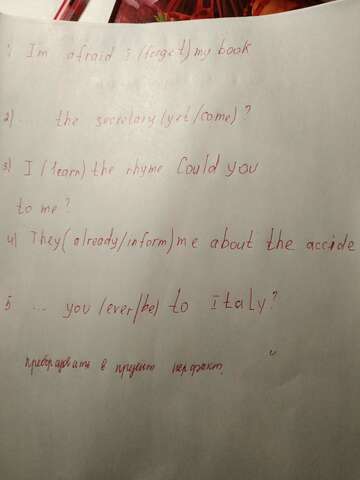 1. I'm afraid I (forget) my book
2) ... the secretary (yet/come)?
3) I (learn) the rhyme Could you
to me?
4) They (already/inform) me about the accide
5 ... you (ever/be) to Italy?
преобразовать в презент перфект.